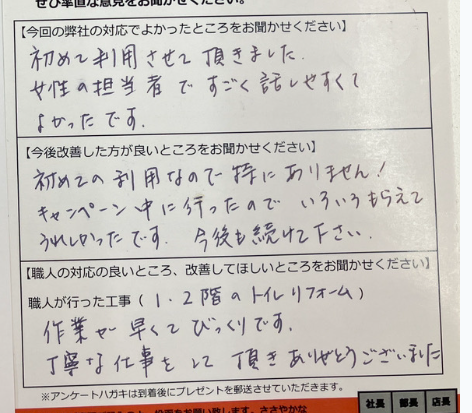 ぜひ率直な意見をお聞かせください。
【今回の弊社の対応でよかったところをお聞かせください】
初めて利用させて頂きました.
女性の担当者ですごく話しやすくて
よかったです.
【今後改善した方が良いところをお聞かせください】
初めての利用なので特にありません!
キャンペーン中に行ったのでいろいろもらえて
うれしかったです. 今後も続けて下さい.
【職人の対応の良いところ、改善してほしいところをお聞かせください】
職人が行った工事（1.2階のトイレリフォーム）
作業が早くてびっくりです.
丁寧な仕事をして頂きありがとうございました
※アンケートハガキは到着後にプレゼントを郵送させていただきます。
社長 部長 店長